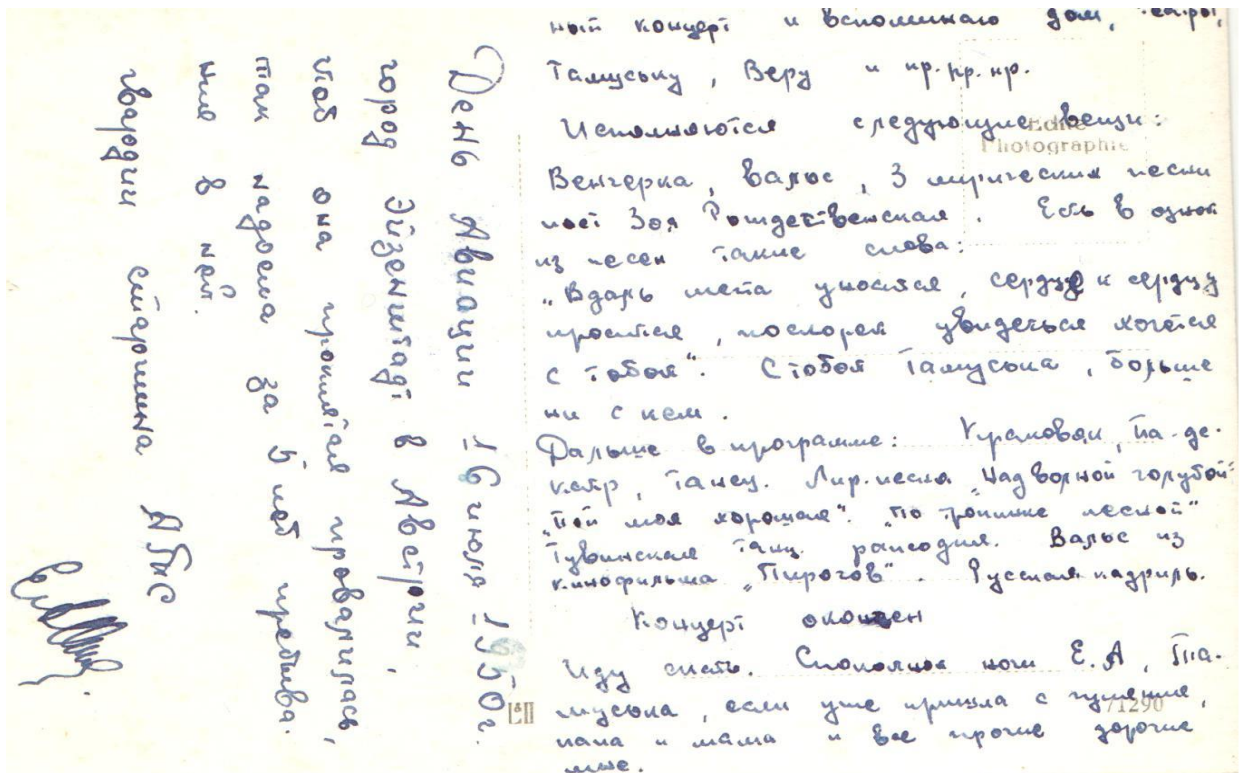 ный концерт и вспоминаю дом, театры,
Тамуську, Веру и пр. пр. пр.
Исполняются следующие вещи:
Венгерка, вальс, 3 лирических песни
поёт Зоя Рождественская. Есть в одной
из песен такие слова:
„Вдаль мечта уносится, сердце к сердцу
просится, поскорей увидеться хочется
с тобой". С тобой Тамуська, больше
ни с кем.
Дальше в программе: Краковяк, па-де-
катр, танец. Лир. песня „Над волной голубой"
„Пой моя хорошая". „По тропинке лесной"
Тувинская танц. рапсодия. Вальс из
кинофильма „Пирогов". Русская кадриль.
Концерт окончен
Иду спать. Спокойной ночи Е.А, Та-
муська, если уже пришла с гуляния,
папа и мама и все прочие дорогие
мне.
День Авиации 16 июля 1950г.
город Эйзенштадт в Австрии,
чтоб она проклятая провалилась,
так надоела за 5 лет пребыва-
ния в ней.
гвардии старшина АБиС
Edité
Photographie
71290